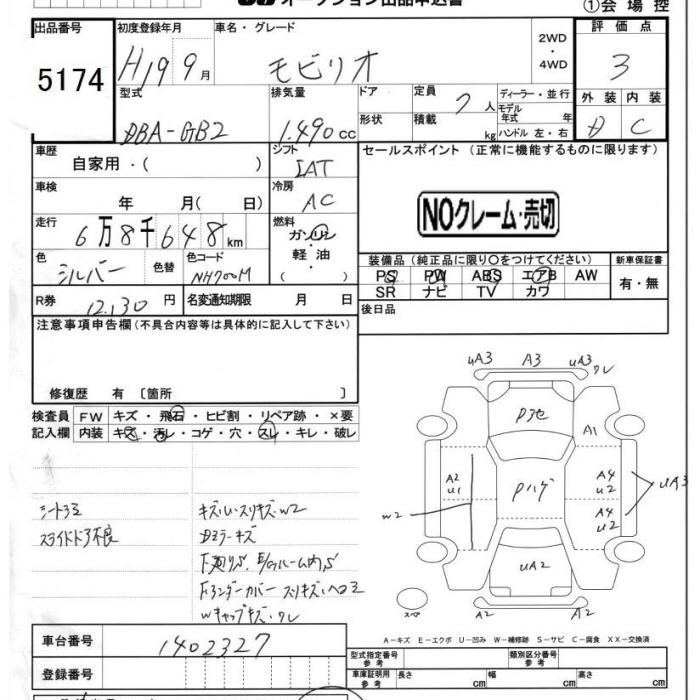 オークション出品申込書
①会場控
出品番号
初度登録年月
車名・グレード
2WD
・
4WD
評価点
5174
H19 9月
モビリオ
3
型式
排気量
ドア
定員
7人
ディーラー・並行
モデル年式 年
外装
内装
形状
積載
kg
ハンドル 左・右
DBA-GB2
1.490cc
D
C
車歴
自家用・( )
シフト
IAT
セールスポイント (正常に機能するものに限ります)
車検
年 月( 日)
冷房
AC
NOクレーム・売切
走行
6万8千648km
燃料
ガソリン
・
軽油
・
( )
色
シルバー
色替
色コード
NH700M
装備品 (純正品に限り○をつけてください)
新車保証書
PS PW ABS エアB AW
SR ナビ TV カワ
有・無
R券
12,130円
名変通知期限 月 日
後日品
注意事項申告欄(不具合内容等は具体的に記入して下さい)
修復歴 有 〔箇所 〕
検査員
記入欄
FW キズ・飛石・ヒビ割・リペア跡・×要
内装 キズ・汚レ・コゲ・穴・スレ・キレ・破レ
uA3 A3 uA3 ワレ
Pヨゴ
A1
A2
u1
Pハゲ
A4
u2
A4
u2
uA3
w2
uA2
スペ
A2 A2
シートヨゴ
スライドドア不良
キズ
Fアンダーカバー スリキズ
Wキャップキズ・ワレ
A-キズ E-エクボ U-凹み W-補修跡 S-サビ C-腐食 XX-交換済
車台番号
1402327
型式指定番号
参考
類別区分番号
参考
登録番号
車庫証明用
参考
長さ cm
幅 cm
高さ cm